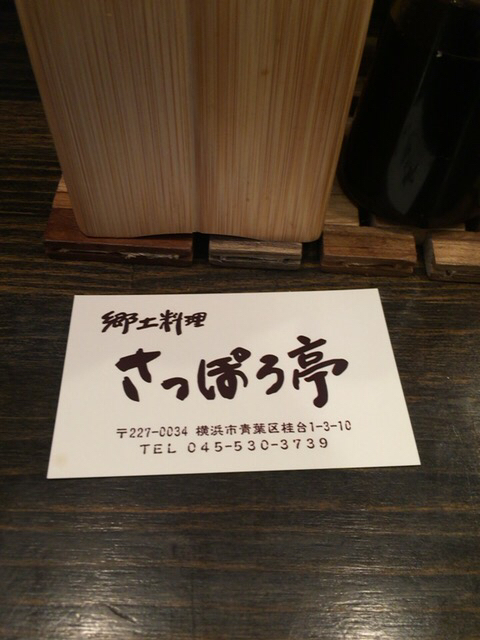 郷土料理
さっぽろ亭
〒227-0034 横浜市青葉区桂台1-3-10
TEL 045-530-3739